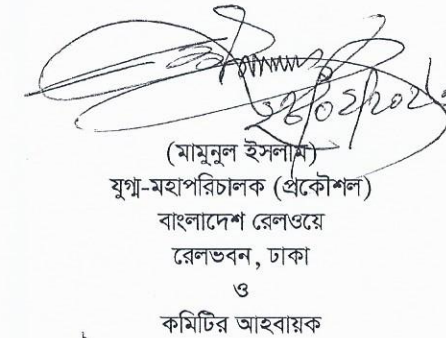 (মামুনুল ইসলাম)
যুগ্ম-মহাপরিচালক (প্রকৌশল)
বাংলাদেশ রেলওয়ে
রেলভবন, ঢাকা
ও
কমিটির আহবায়ক